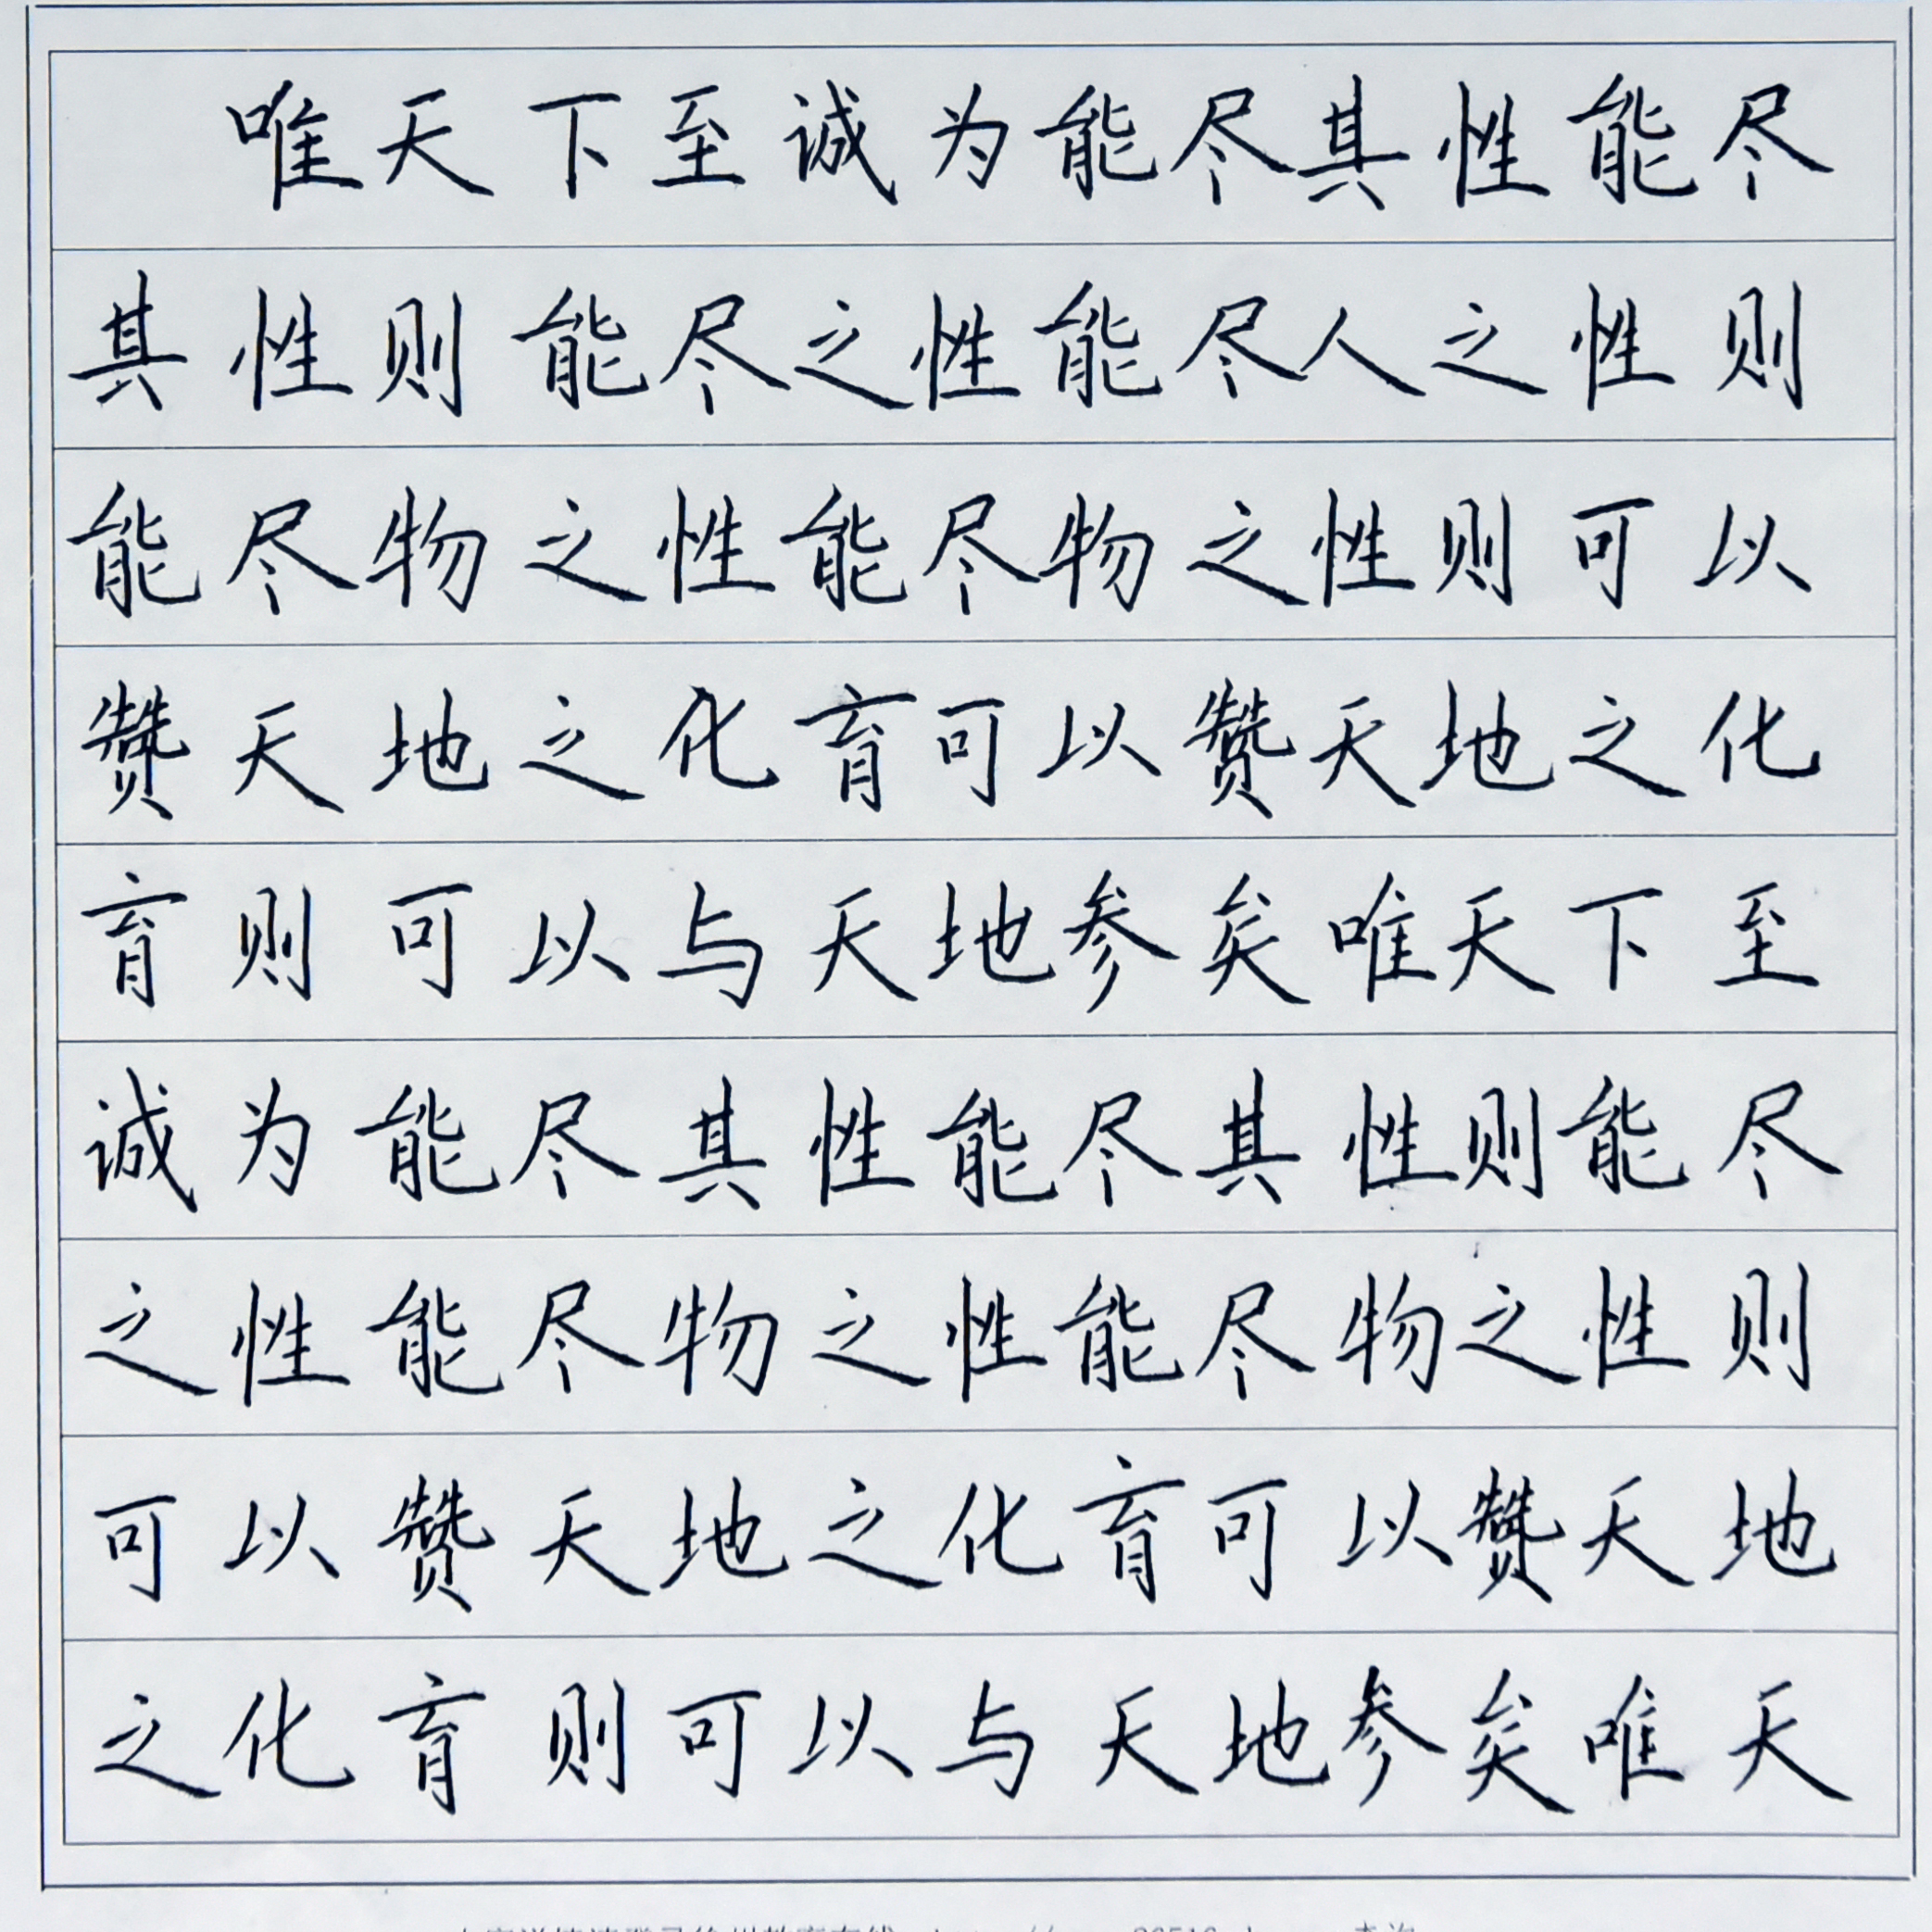 唯天下至诚为能尽其性能尽
其性则能尽之性能尽人之性则
能尽物之性能尽物之性则可以
赞天地之化育可以赞天地之化
育则可以与天地参矣唯天下至
诚为能尽其性能尽其性则能尽
之性能尽物之性能尽物之性则
可以赞天地之化育可以赞天地
之化育则可以与天地参矣唯天